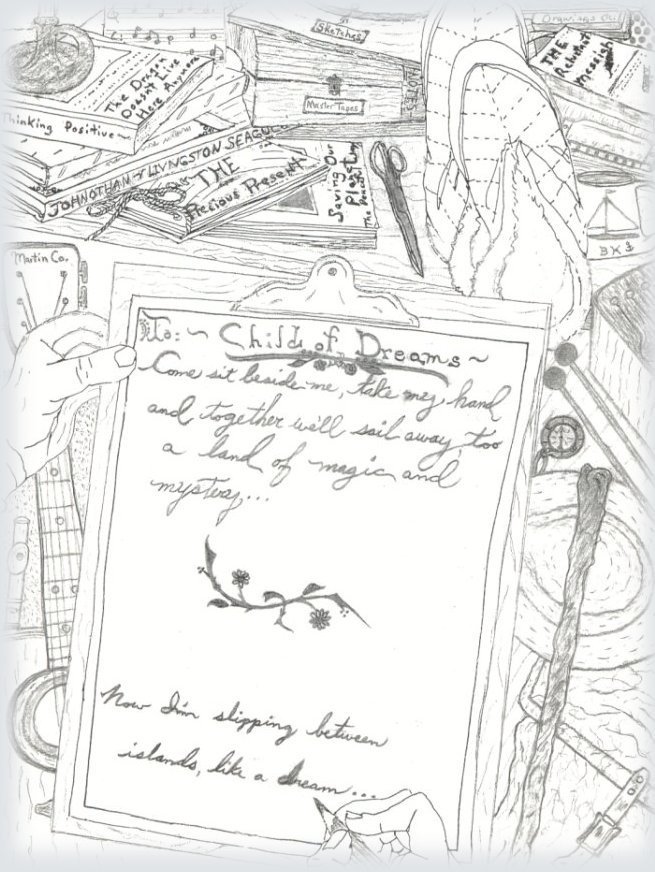 Sketches
Drawings
THE
Reluctant
Messiah
The Dragon
Doesn't Live
Here Anymore
Master Tapes
Thinking Positive
JOHNOTHAN LIVINGSTON SEAGULL
THE
Precious Present
Saving Our
Planet
Martin Co.
BKS
To: ~ Child of Dreams ~
Come sit beside me, take my hand
and together we'll sail away, too
a land of magic and
mystery...
Now I'm slipping between
islands, like a dream...